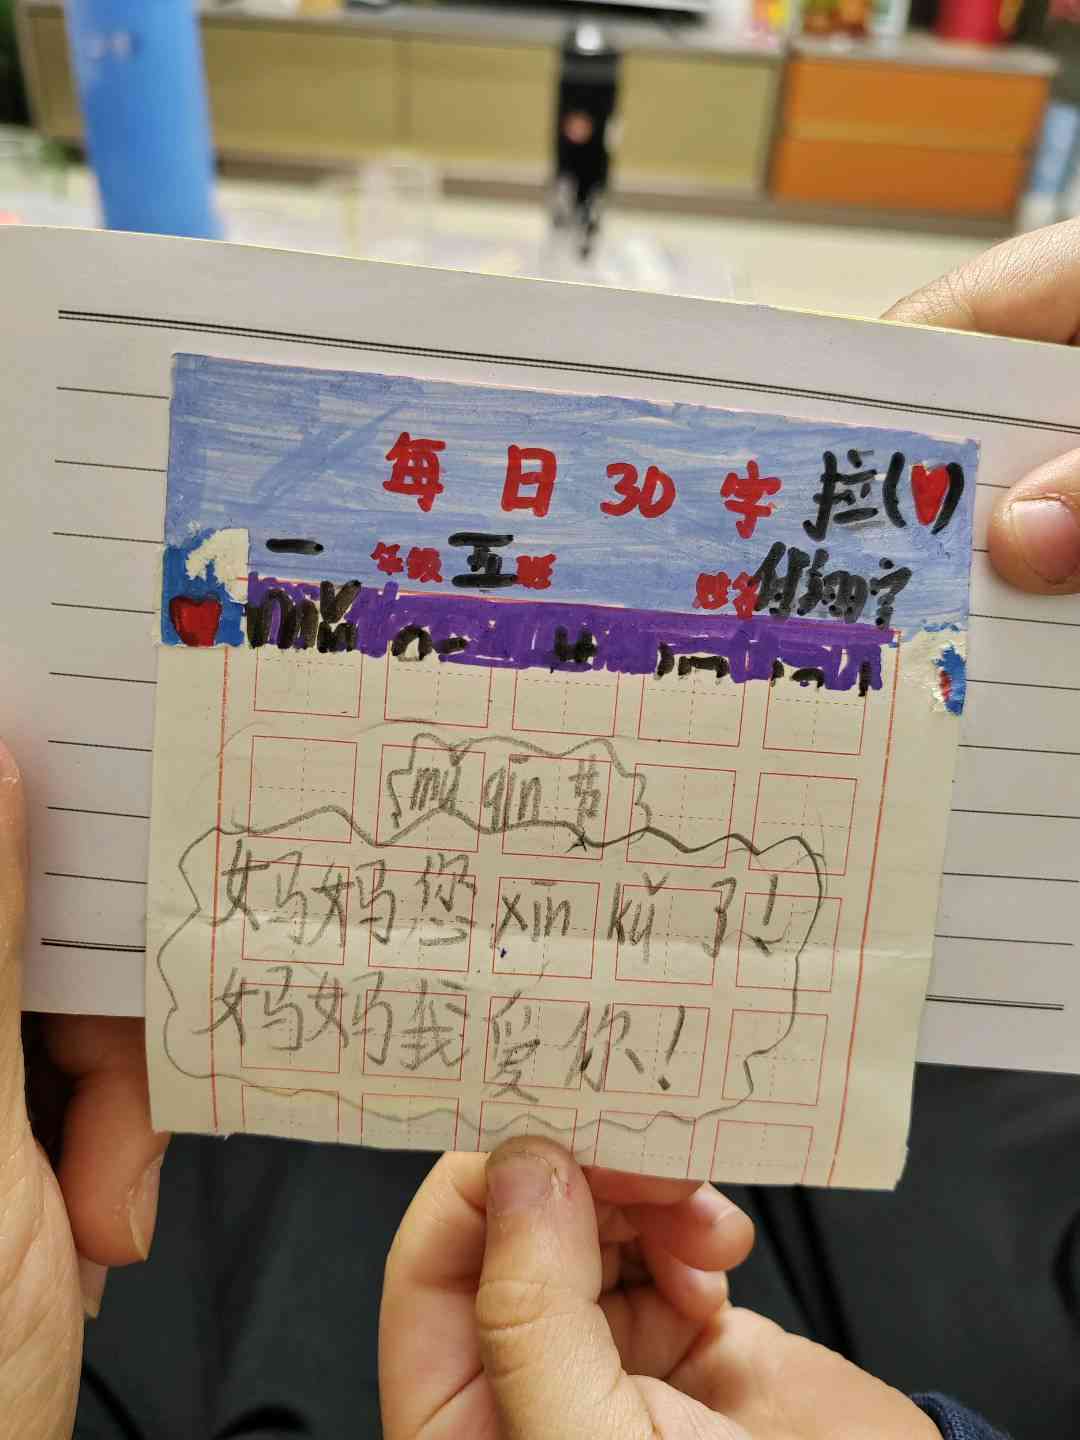 每日30字 拉(❤)
一年级五班 姓名付翔宁
mǔ qīn 节
妈妈您xīn kǔ了!
妈妈我爱你!